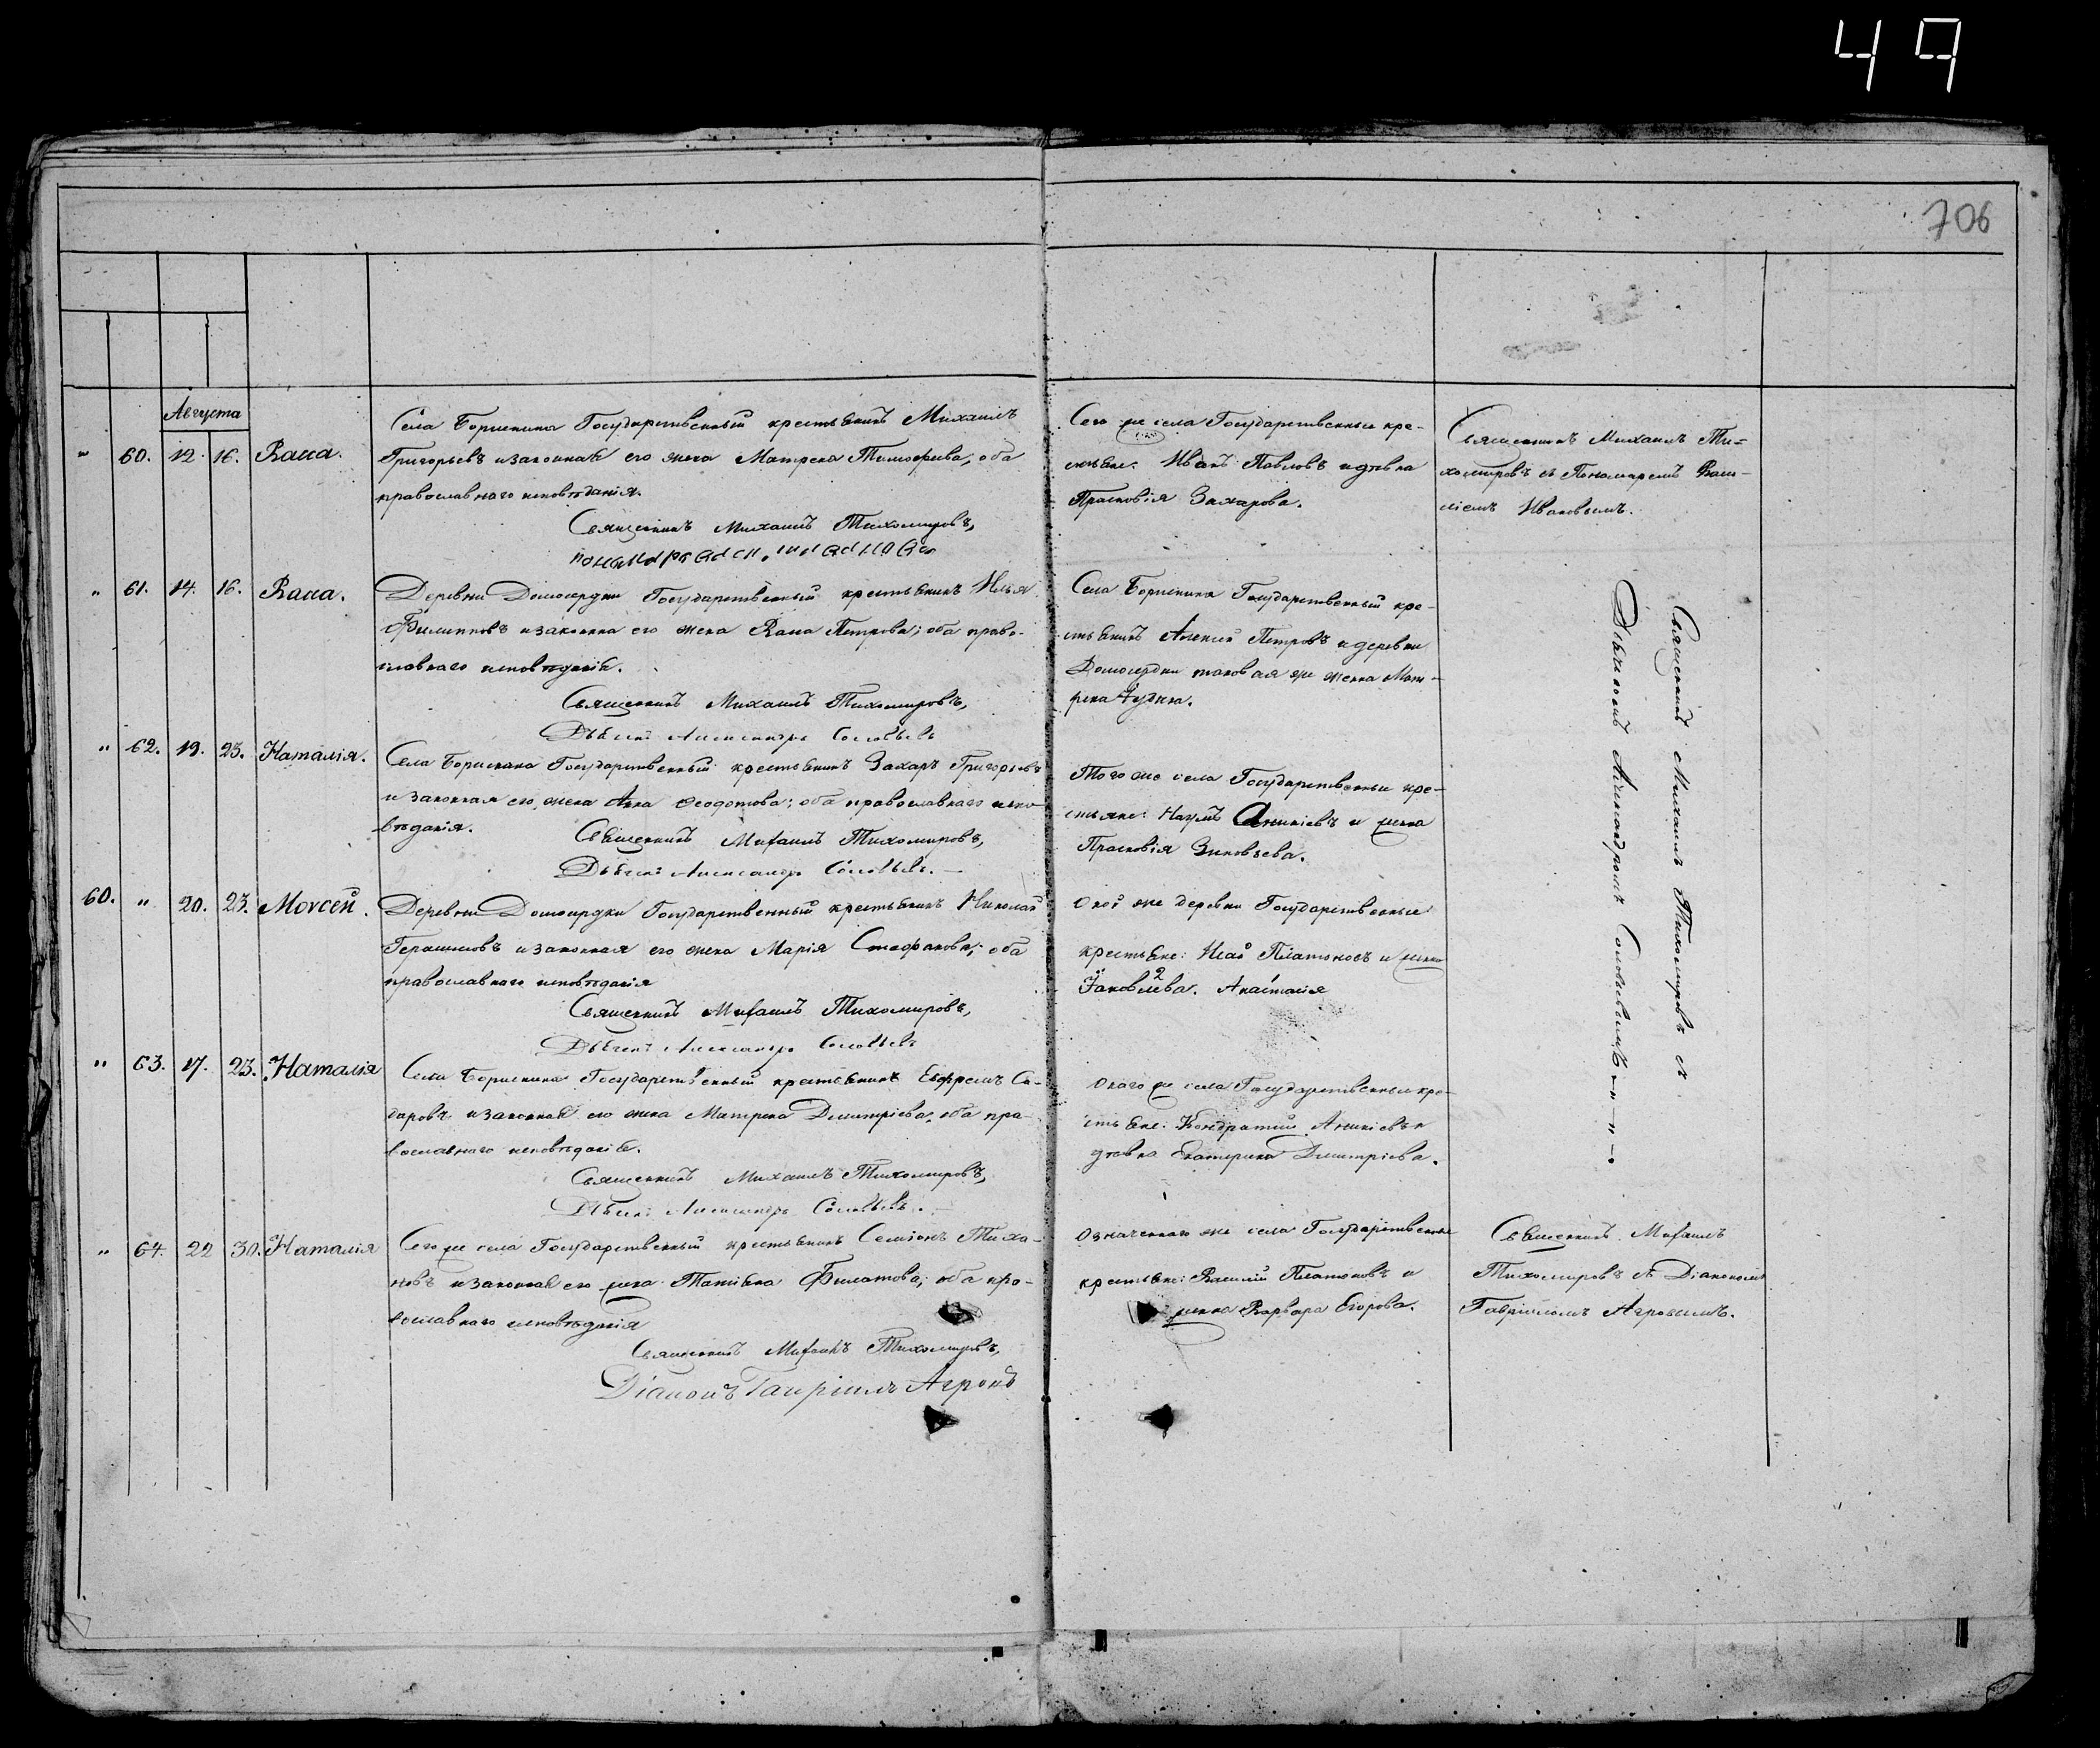 49
706
Августа
" 60. 12. 16. Васса.
Села Борискина Государственный крестьянинъ Михаилъ
Григорьевъ и законная его жена Матрена Тимофеева; оба
православнаго исповѣданія.
Священникъ Михаилъ Тихомировъ,
Сего же села Государственные кре-
стьяне: Иванъ Павловъ и дѣвка
Прасковія Захарова.
Священникъ Михаилъ Ти-
хомировъ съ Пономаремъ Васи-
ліемъ Ивановымъ.
" 61. 14. 16. Васса.
Деревни Домосердки Государственный крестьянинъ Илья
Филипповъ и законна его жена Васса Петрова; оба право-
славнаго исповѣданія.
Священникъ Михаилъ Тихомировъ,
Дьячекъ Александръ Соловьевъ
Села Борискина Государственный кре-
стьянинъ Алексей Петровъ и деревни
Домосердки таковая же женка Мат-
рена
Священникъ Михаилъ Тихомировъ съ
Дьячкомъ Александромъ Соловьевымъ
" 62. 19. 23. Наталія.
Села Борискина Государственный крестьянинъ Захаръ Григорьевъ
и законная его жена Анна Ѳеодотова; оба православнаго испо-
вѣданія.
Священникъ Михаилъ Тихомировъ,
Дьячекъ Александръ Соловьевъ.
Того же села Государственные кре-
стьяне: Наумъ Аникіевъ и женка
Прасковія Зиновьева.
60. " 20. 23. Моѵсей.
Деревни Домосердки Государственный крестьянинъ Николай
Герасимовъ и законная его жена Марія Стефанова; оба
православнаго исповѣданія
Священникъ Михаилъ Тихомировъ,
Дьячекъ Александръ Соловьевъ
Оной же деревни Государственные
крестьяне: Исай Платоновъ и женка
Іаковлева. Анастасія
" 63. 17. 23. Наталія
Села Борискина Государственный крестьянинъ Ефремъ Си-
даровъ и законная его жена Матрена Димитріева; оба пра-
вославнаго исповѣданія.
Священникъ Михаилъ Тихомировъ,
Дьячекъ Александръ Соловьевъ.
Онаго же села Государственные кре-
стьяне: Кондратий Аникіевъ и
дѣвка Екатерина Димитріева.
" 64. 22 30. Наталія
Сего же села Государственный крестьянинъ Семіонъ Тиха-
новъ и законная его жена Татіана Филатова; оба пра-
вославнаго исповѣданія
Священникъ Михаилъ Тихомировъ,
Діаконъ Гавріилъ Агровъ
Означеннаго же села Государственные
крестьяне: Василій Платоновъ и
женка Варвара Егорова.
Священникъ Михаилъ
Тихомировъ съ Діакономъ
Гавріиломъ Агровымъ.